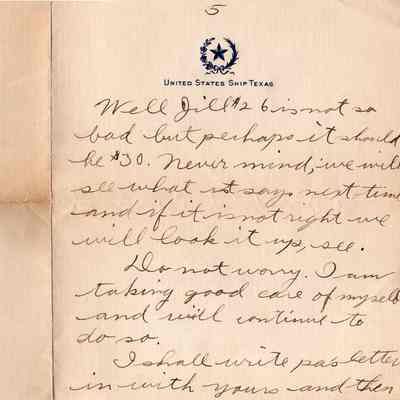 5
UNITED STATES SHIP TEXAS
Well Jill $26 is not so
bad but perhaps it should
be $30. Never mind, we will
see what it says next time
and if it is not right we
will look it up, see.
Do not worry. I am
taking good care of myself
and will continue to
do so.
I shall write pas letter
in with yours and then